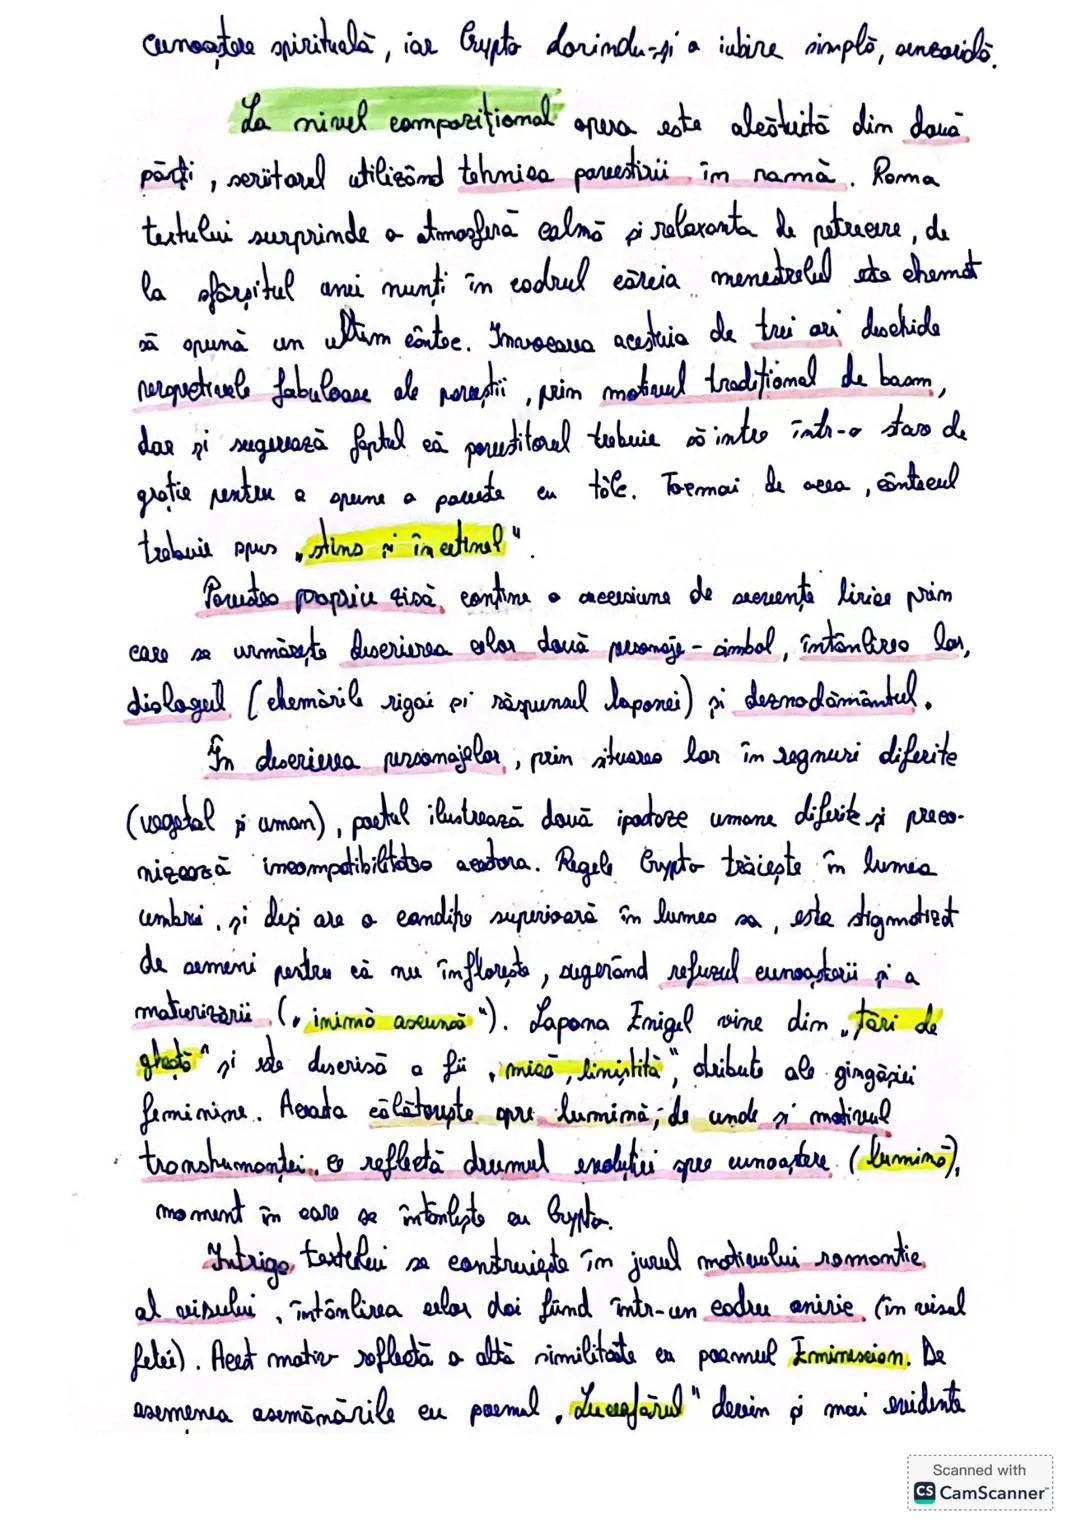 cunoaștere spirituală, iar Crypto dorindu-și o iubire simplă, senzorială.
La nivel compozițional opera este alcătuită din două
părți, scriitorul utilizând tehnica povestirii în ramă. Rama
textului surprinde o atmosferă calmă și relaxanta de petrecere, de
la sfârșitul unei nunți în cadrul căreia menestrelul este chemat
să spună un ultim cântec. Invocarea acestuia de trei ori deschide
perspectivele fabuloase ale poveștii, prin motivul tradițional de basm,
dar și sugerează faptul că povestitorul trebuie să intre într-o stare de
grație pentru a spune o poveste cu tâlc. Tocmai de aceea, cântecul
trebuie spus „stins și încetinel".
Povestea propriu zisă conține o succesiune de secvențe lirice prin
care se urmărește descrierea celor două personaje-simbol, întâlnirea lor,
dialogul (chemările rigăi și răspunsul laponei) și deznodământul.
În descrierea personajelor, prin situarea lor în regnuri diferite
(vegetal și uman), poetul ilustrează două ipostaze umane diferite și preco-
nizează incompatibilitatea acestora. Regele Crypto trăiește în lumea
umbrei, și deși are o condiție superioară în lumea sa, este stigmatizat
de semeni pentru că nu înflorește, sugerând refuzul cunoașterii și a
maturizării („inimă ascunsă"). Lapona Enigel vine din „țări de
gheață" și este descrisă a fi „mică, liniștită", atribute ale gingășiei
feminine. Aceasta călătorește spre lumină, de unde și motivul
transhumanței, ce reflectă drumul evoluției spre cunoaștere (lumină),
moment în care se întâlnește cu Crypto.
Intriga textului se construiește în jurul motivului romantic
al visului, întâlnirea celor doi fiind într-un cadru oniric (în visul
fetei). Acest motiv reflectă o altă similitate cu poemul Eminescian. De
asemenea asemănările cu poemul „Luceafărul" devin și mai evidente
Scanned with
CS CamScanner